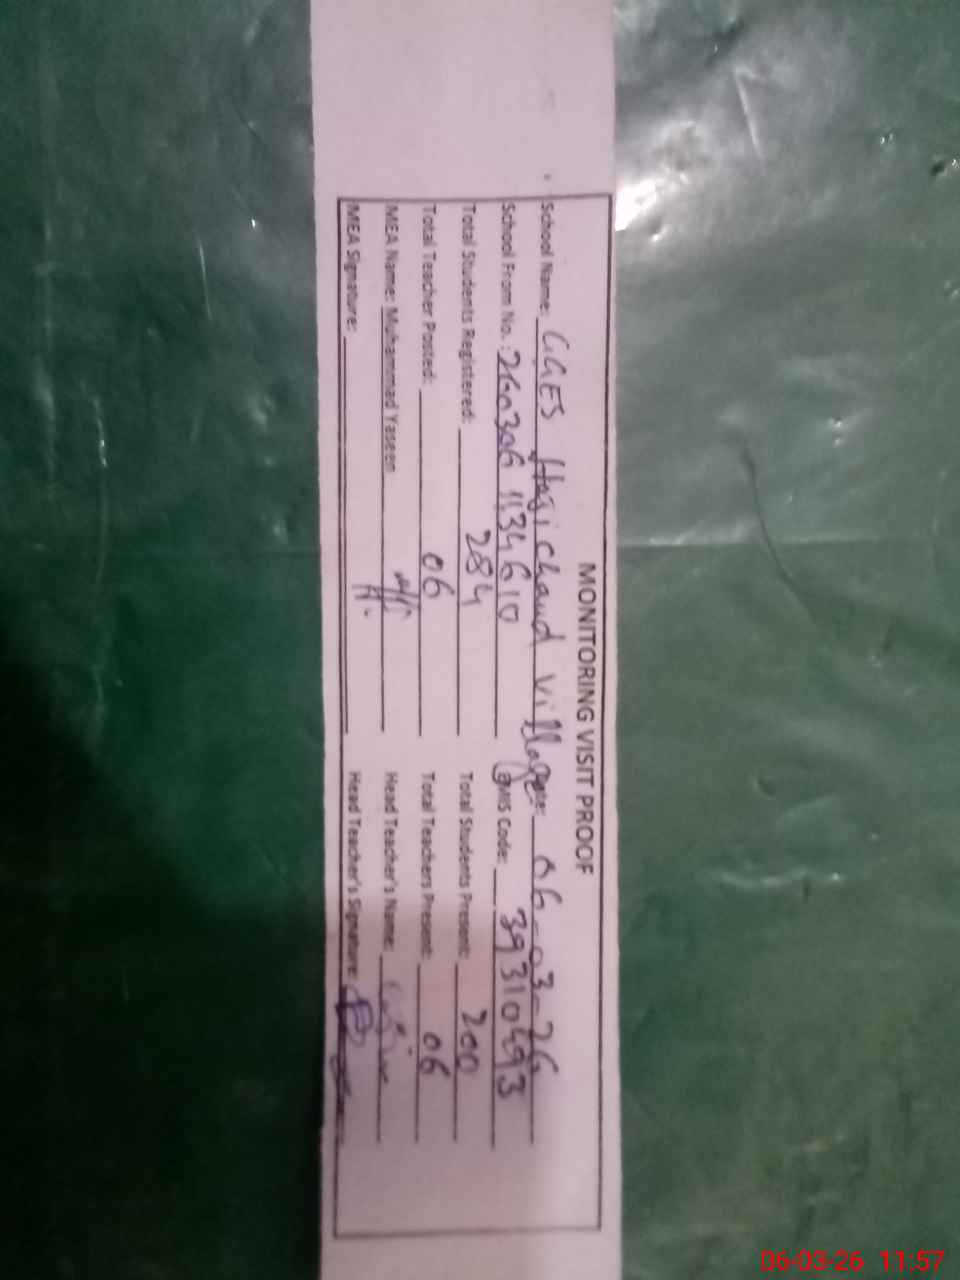 MONITORING VISIT PROOF
School Name: GGES Haji chand village 06-03-26
School From No. : 2603061134610 EMIS Code: 39310493
Total Students Registered: 284 Total Students Present: 200
Total Teacher Posted: 06 Total Teachers Present: 06
MEA Name: Muhammad Yaseen Head Teacher's Name:
MEA Signature: Head Teacher's Signature:
06-03-26 11:57